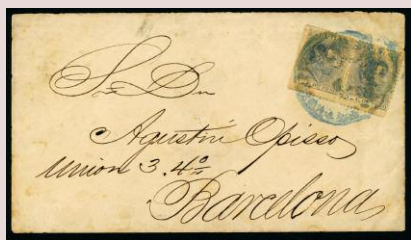 Sr. Dn.
Agustín Opisso
Union 3. 4º
Barcelona